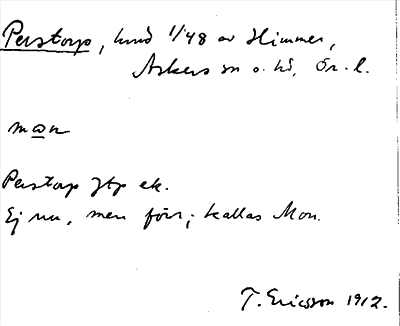 Perstorp, kund 1/48 av Himmer,
Askers sn o. hd, Ör. l.
man
Perstorp Jtp ek.
Ej nu, men förr; kallas Mon.
T. Ericsson 1912.